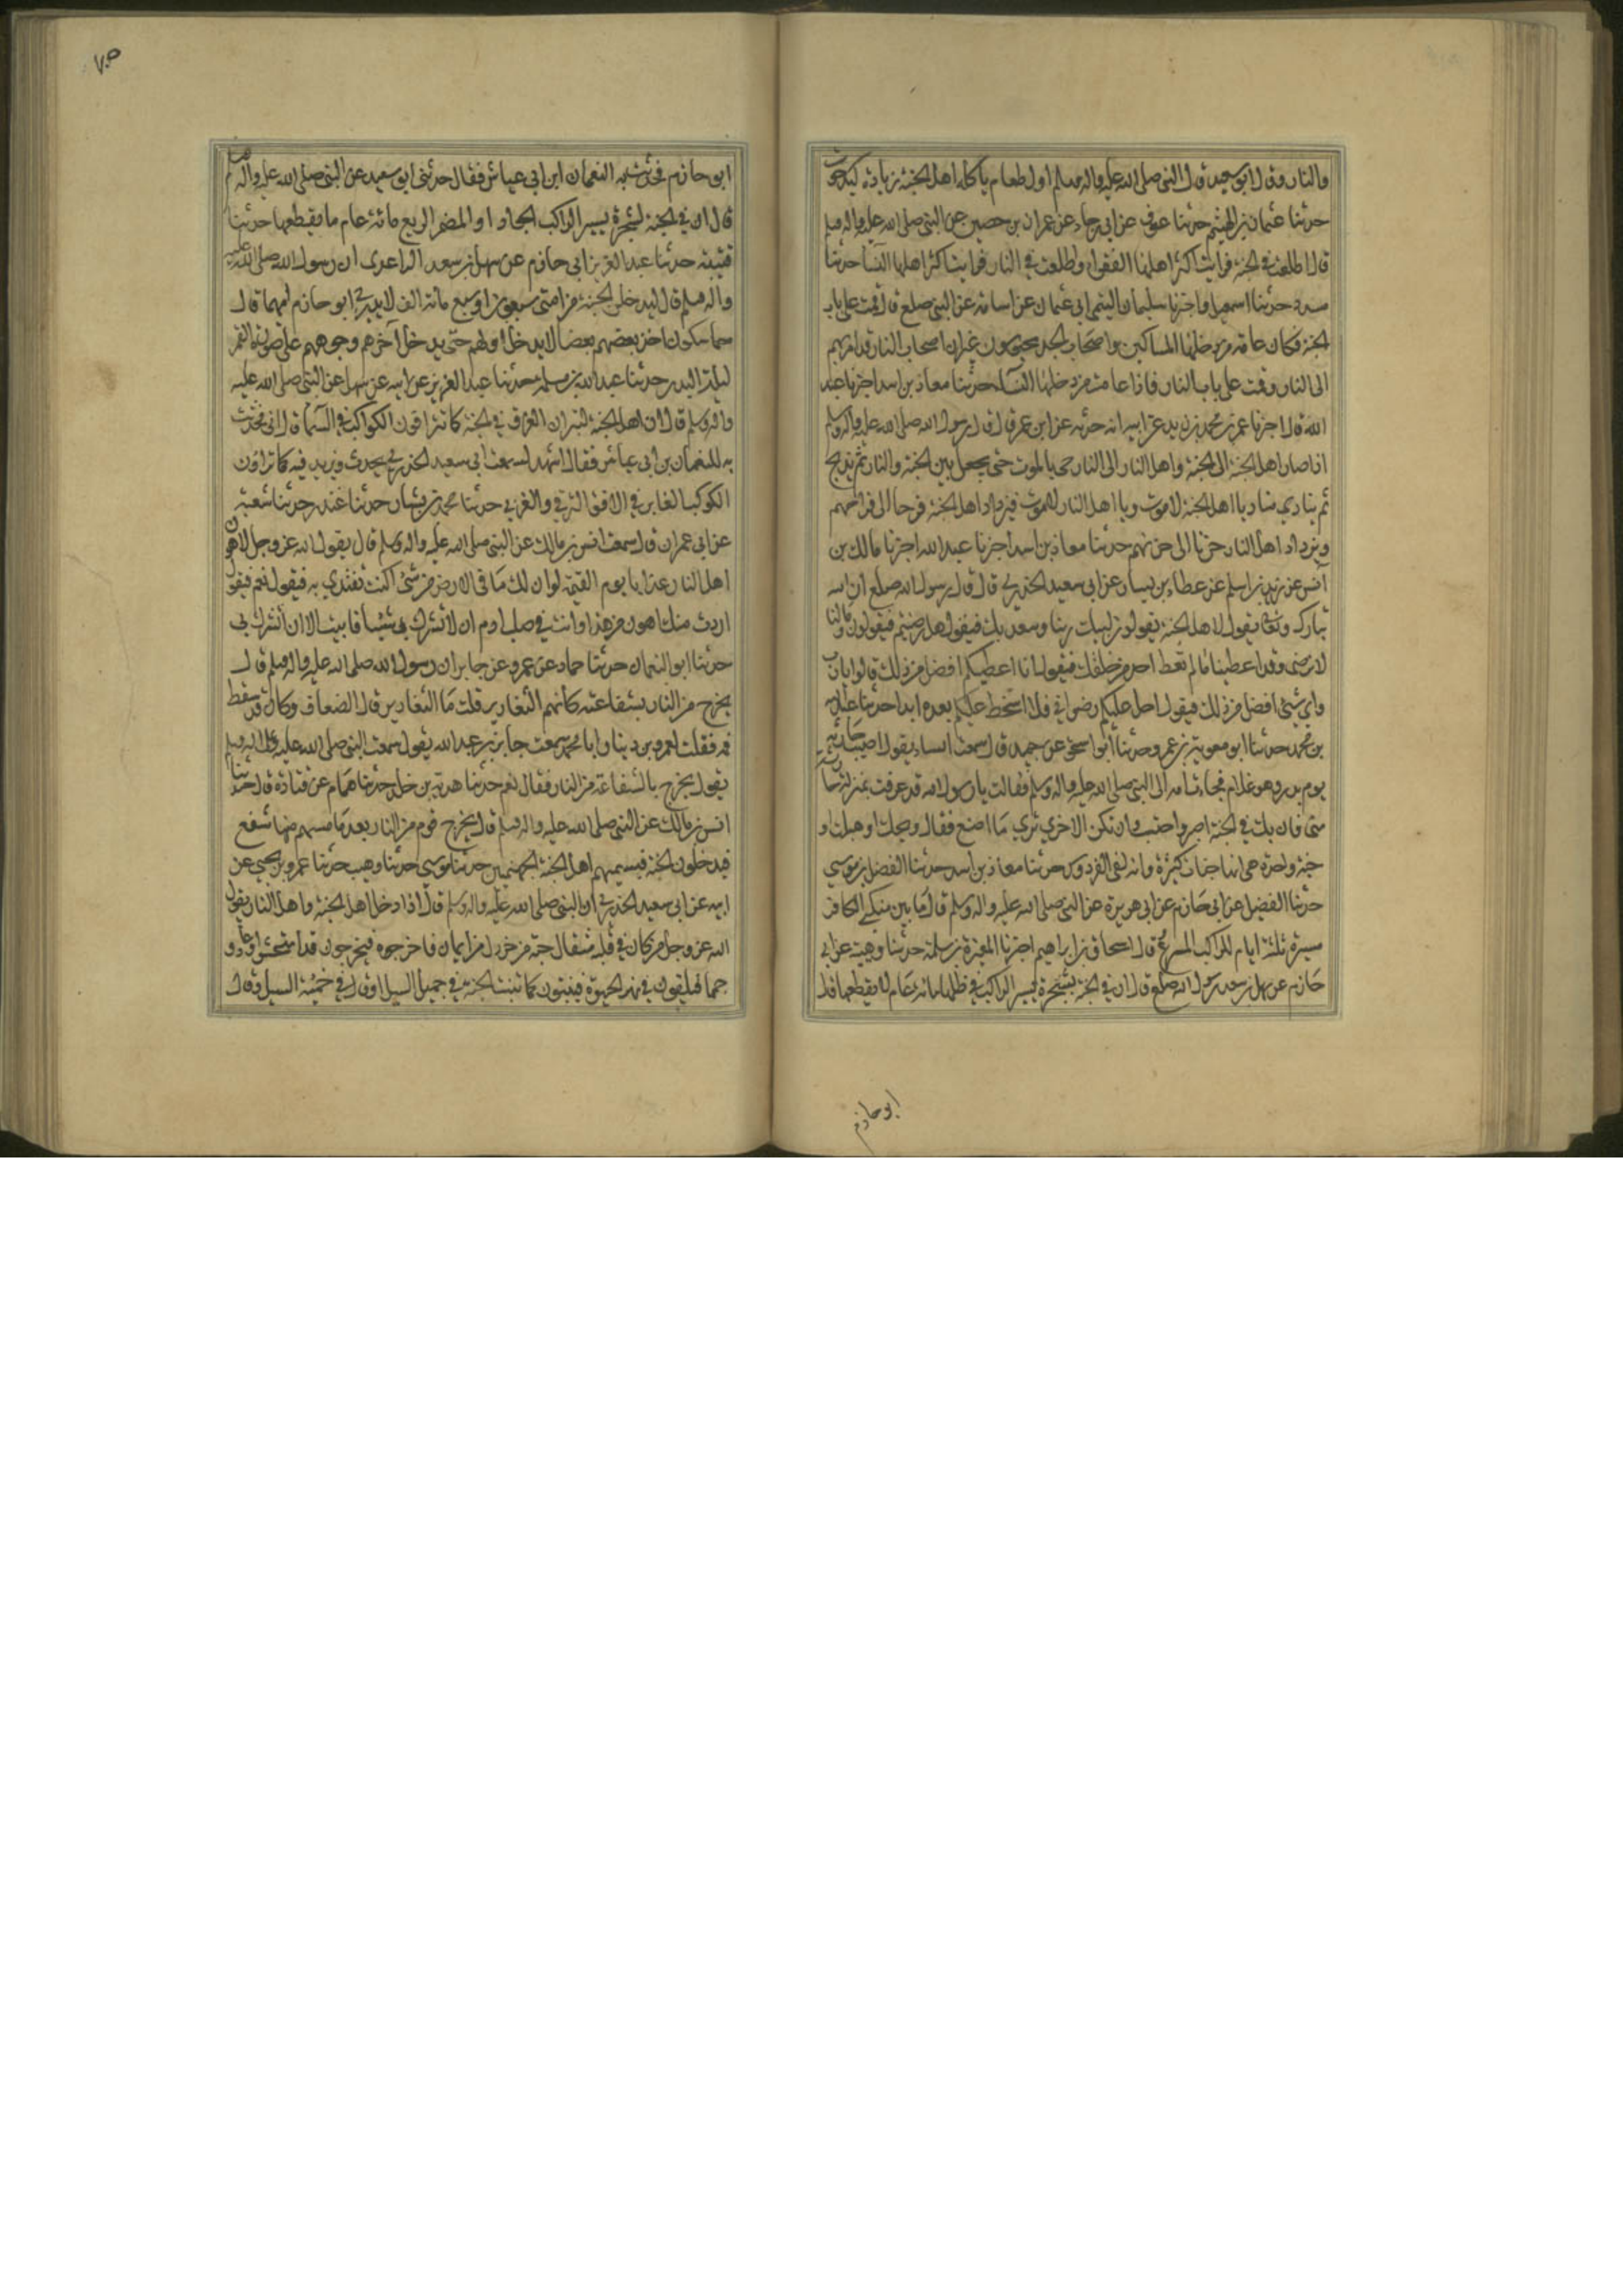 والنار وقال ابو سعيد قال النبي صلى الله عليه واله وسلم اول طعام ياكله اهل الجنة زيادة كبد حوت
حدثنا عثمان بن الهيثم حدثنا عوف عن ابي رجاء عن عمران بن حصين عن النبي صلى الله عليه واله وسلم
قال اطلعت في الجنة فرايت اكثر اهلها الفقراء واطلعت في النار فرايت اكثر اهلها النساء حدثنا
مسدد حدثنا اسمعيل واخبرنا سليمان التيمي ابي عثمان عن اسامة عن النبي صلعم قال قمت على باب
الجنة فكان عامة من دخلها المساكين واصحاب الجد محبوسون غير ان اصحاب النار قد امر بهم
الى النار وقمت على باب النار فاذا عامة من دخلها النساء حدثنا معاذ بن اسد اخبرنا عبد
الله قال اخبرنا عمر بن محمد بن زيد عن ابيه انه حدثه عن ابن عمر قال قال رسول الله صلى الله عليه واله وسلم
اذا صار اهل الجنة الى الجنة واهل النار الى النار جي بالموت حتى يجعل بين الجنة والنار ثم يذبح
ثم ينادي مناد يا اهل الجنة لا موت ويا اهل النار لا موت فيزداد اهل الجنة فرحا الى فرحهم
ويزداد اهل النار حزنا الى حزنهم حدثنا معاذ بن اسد اخبرنا عبد الله اخبرنا مالك بن
انس عن زيد بن اسلم عن عطاء بن يسار عن ابي سعيد الخدري قال قال رسول الله صلعم ان الله
تبارك وتعالى يقول لاهل الجنة يقولون لبيك ربنا وسعديك فيقول هل رضيتم فيقولون وما لنا
لا نرضى وقد اعطيتنا ما لم تعط احد من خلقك فيقول انا اعطيكم افضل من ذلك قالوا يا رب
واي شيء افضل من ذلك فيقول احل عليكم رضواني فلا اسخط عليكم بعده ابدا حدثنا عبد الله
بن محمد حدثنا ابو معوية بن عمرو حدثنا ابو اسحق عن حميد قال سمعت انسا يقول اصيب حارثة
يوم بدر وهو غلام فجاءت امه الى النبي صلى الله عليه واله وسلم فقالت يا رسول الله قد عرفت منزلة حارثة
مني فان يك في الجنة اصبر واحتسب وان تكن الاخرى ترى ما اصنع فقال ويحك اوهبلت او
جنة واحدة هي انها جنان كثيرة وانه لفي الفردوس حدثنا معاذ بن اسد حدثنا الفضل بن موسى
حدثنا الفضيل عن ابي حازم عن ابي هريرة عن النبي صلى الله عليه واله وسلم قال ما بين منكبي الكافر
مسيرة ثلثة ايام للراكب المسرع قال اسحاق بن ابراهيم اخبرنا المغيرة بن سلمة حدثنا وهيب عن ابي
حازم عن سهل بن سعد رسول الله صلعم قال ان في الجنة لشجرة يسير الراكب في ظلها مائة عام لا يقطعها قال
ابو حازم
٧٠٥
ابو حازم فحدثت به النعمان ابن ابي عياش فقال حدثني ابو سعيد عن النبي صلى الله عليه واله وسلم
قال ان في الجنة لشجرة يسير الراكب الجواد او المضمر السريع مائة عام ما يقطعها حدثنا
قتيبة حدثنا عبد العزيز ابي حازم عن سهل بن سعد الساعدي ان رسول الله صلى الله عليه
واله وسلم قال ليدخلن الجنة من امتي سبعون او سبع مائة الف لا يدري ابو حازم ايهما قال
متماسكون اخذ بعضهم بعضا لا يدخل اولهم حتى يدخل آخرهم وجوههم على صورة القمر
ليلة البدر حدثنا عبد الله بن مسلمة حدثنا عبد العزيز عن ابيه عن سهل عن النبي صلى الله عليه
واله وسلم قال ان اهل الجنة ليتراءون الغرف في الجنة كما تتراءون الكواكب في السماء قال ابي فحدثت
به للنعمان بن ابي عياش فقال اشهد لسمعت ابي سعيد الخدري يحدث ويزيد فيه كما تراون
الكوكب الغابر في الافق الشرقي والغربي حدثنا محمد بن بشار حدثنا غندر حدثنا شعبة
عن ابي عمران قال سمعت انس بن مالك عن النبي صلى الله عليه واله وسلم قال يقول الله عز وجل لاهون
اهل النار عذابا يوم القيمة لو ان لك ما في الارض من شيء اكنت تفتدي به فيقول نعم فيقول
اردت منك اهون من هذا وانت في صلب ادم ان لا تشرك بي شيئا فابيت الا ان تشرك بي
حدثنا ابو النعمان حدثنا حماد عن عمرو عن جابر ان رسول الله صلى الله عليه واله وسلم قال
يخرج من النار بشفاعته كانهم الثعارير قلت ما الثعارير قال الضعاف وكان قد سقط
فمه فقلت لعمرو بن دينار ابا محمد سمعت جابر بن عبد الله يقول سمعت النبي صلى الله عليه واله وسلم
يقول يخرج بالشفاعة من النار فقال نعم حدثنا هدبة بن خالد حدثنا همام عن قتادة قال حدثنا
انس بن مالك عن النبي صلى الله عليه واله وسلم قال يخرج قوم من النار بعد ما مسهم منها سفع
فيدخلون الجنة فيسميهم اهل الجنة الجهنميين حدثنا موسى حدثنا وهيب حدثنا عمرو بن يحيى عن
ابيه عن ابي سعيد الخدري ان النبي صلى الله عليه واله وسلم قال اذا دخل اهل الجنة واهل النار يقول
الله عز وجل من كان في قلبه مثقال حبة من خردل من ايمان فاخرجوه فيخرجون قد امتحشوا وعادوا
حمما فيلقون في نهر الحيوة فينبتون كما تنبت الحبة في حميل السيل او قال في حمئة السيل وقال